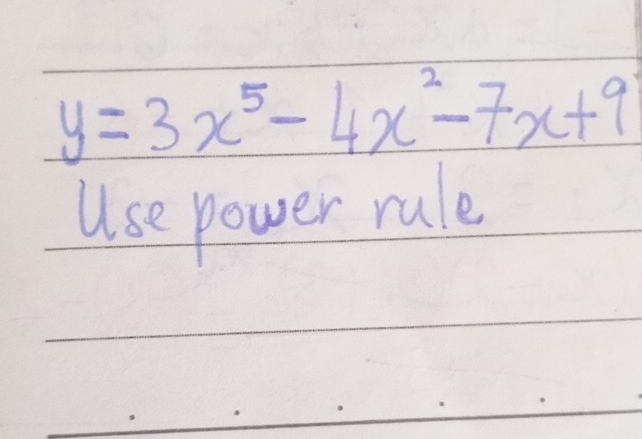 y = 3x⁵ - 4x² - 7x + 9
Use power rule